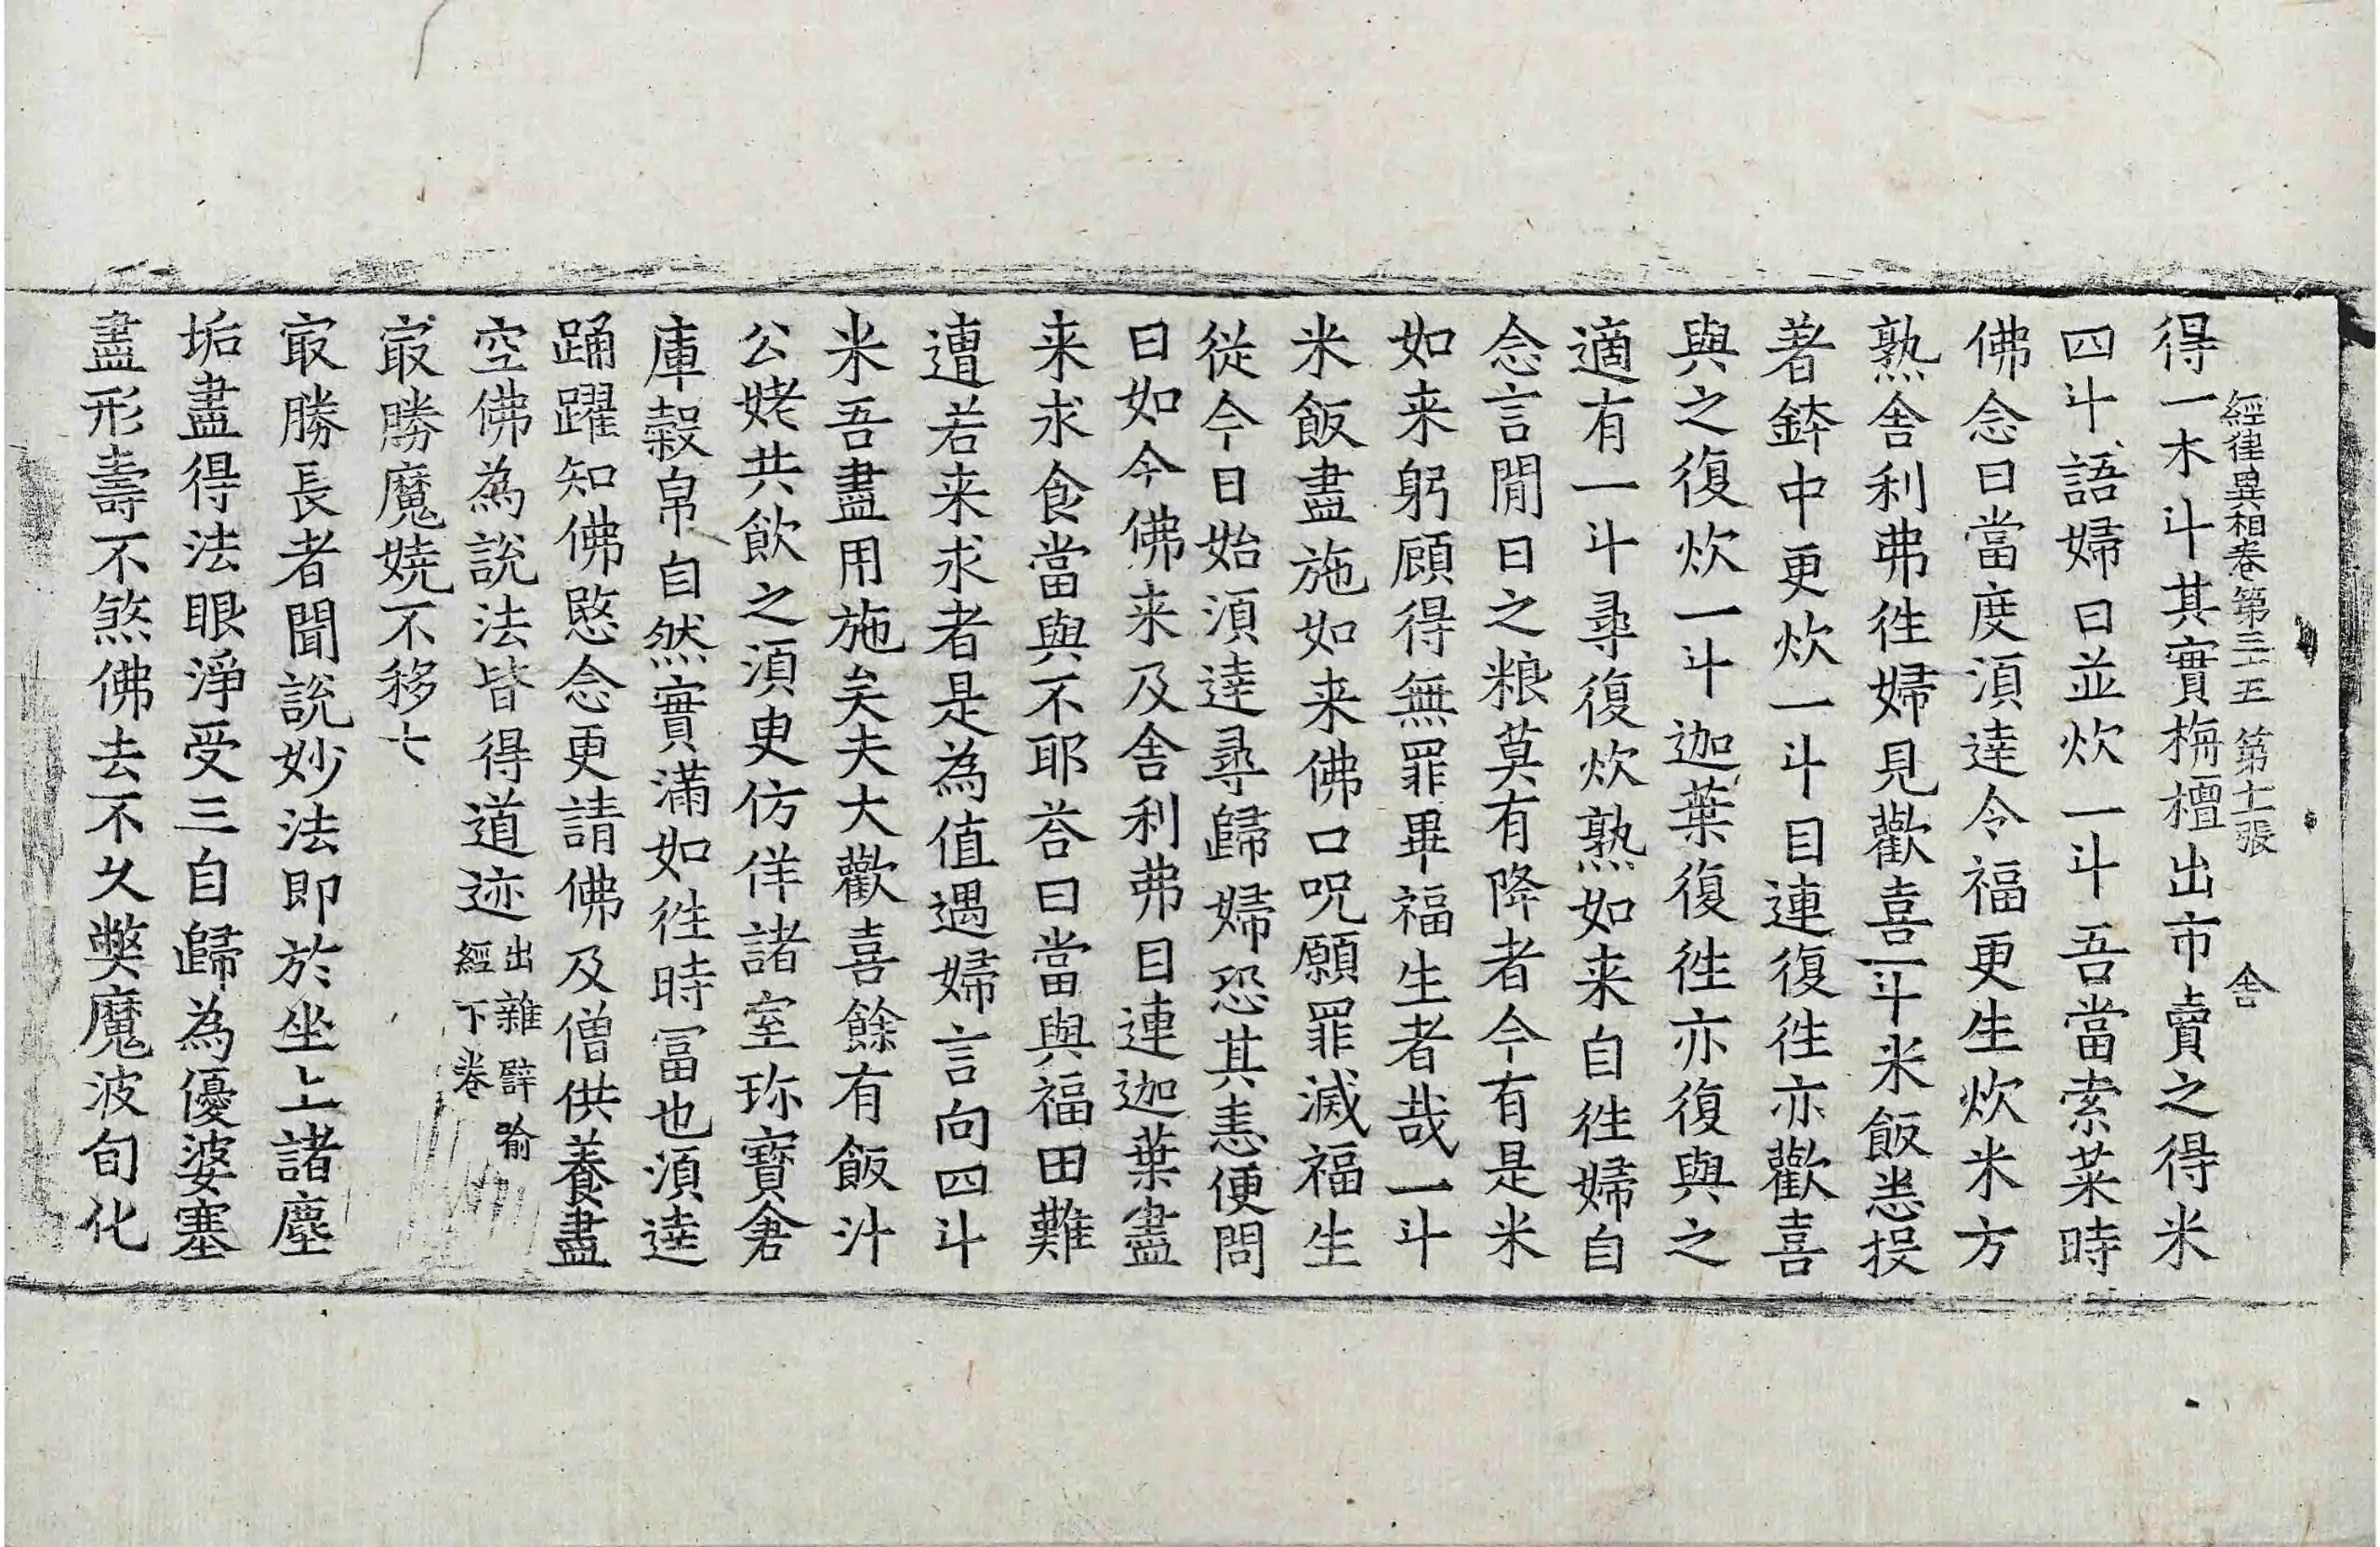 經律異相卷第三十五 第十一張 舍
得一木斗其實栴檀出市賣之得米
四斗語婦曰並炊一斗吾當索菜時
佛念曰當度湏達令福更生炊米方
熟舍利弗徃婦見歡喜一斗米飯悉投
著鉢中更炊一斗目連復徃亦歡喜
與之復炊一斗迦葉復徃亦復與之
適有一斗尋復炊熟如来自徃婦自
念言閒日之粮莫有降者今有是米
如来躬顧得無罪畢福生者哉一斗
米飯盡施如来佛口呪願罪滅福生
從今日始湏達尋歸婦恐其恚便問
曰如今佛来及舍利弗目連迦葉盡
来求食當與不耶荅曰當與福田難
遭若来求者是為值遇婦言向四斗
米吾盡用施矣夫大歡喜餘有飯汁
公姥共飲之湏臾仿佯諸室珎寳倉
庫穀帛自然實滿如徃時冨也湏達
踊躍知佛愍念更請佛及僧供養盡
空佛為説法皆得道迹出雜辟喻
經下卷
㝡勝魔嬈不移七
㝡勝長者聞説妙法即於坐上諸塵
垢盡得法眼淨受三自歸為優婆塞
盡形壽不煞佛去不久獘魔波旬化